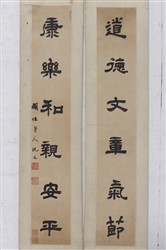 道德文章氣節
康樂和親安平